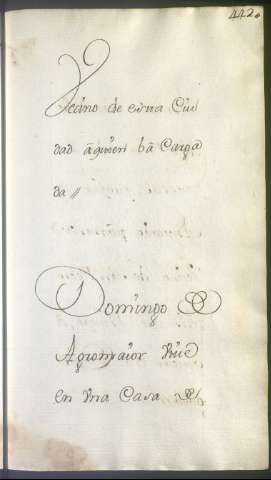 442.
Vecino de esta Ciu
dad â quien bâ Carga
da //
Domingo
Agromaior Viue
en Vna Casa